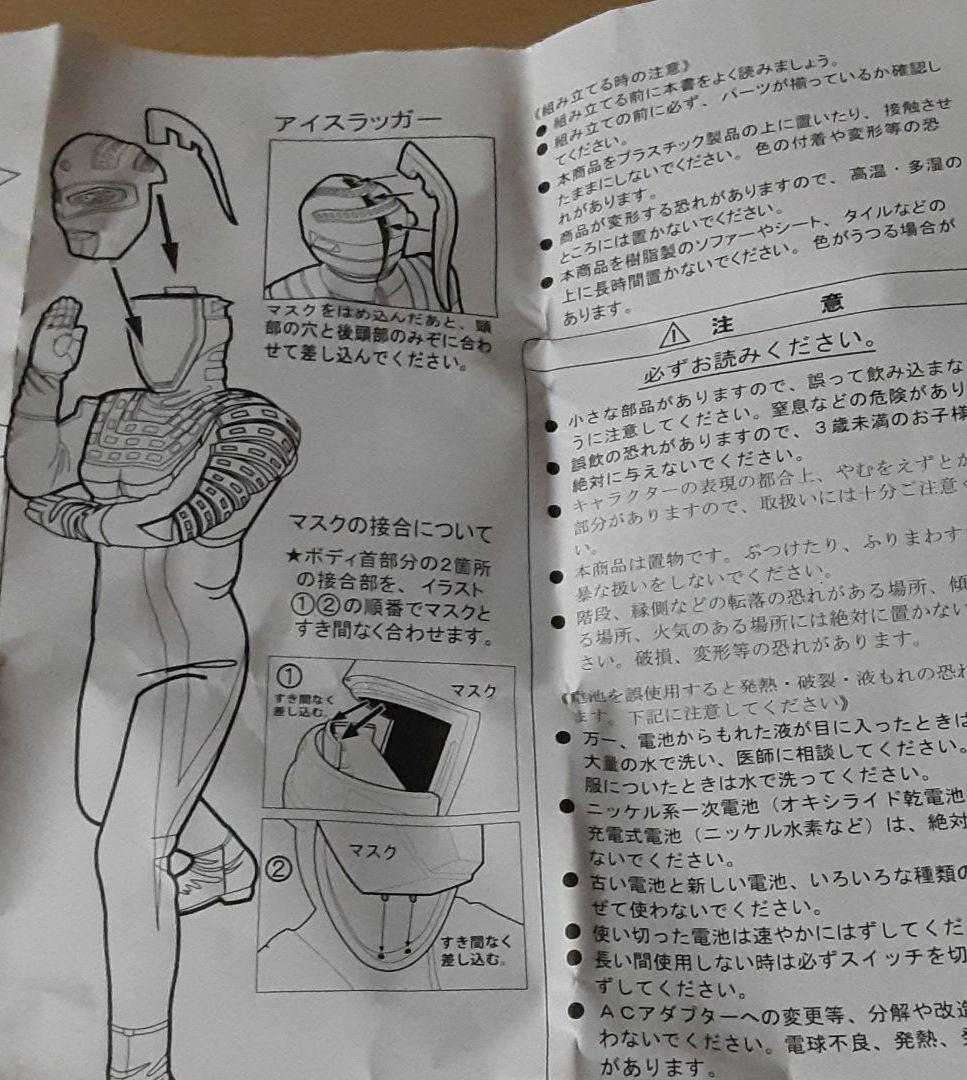 アイスラッガー
マスクをはめ込んだあと、頭
部の穴と後頭部のみぞに合わ
せて差し込んでください。
マスクの接合について
★ボディ首部分の2箇所
の接合部を、イラスト
①②の順番でマスクと
すき間なく合わせます。
①
すき間なく
差し込む。
マスク
②
マスク
すき間なく
差し込む。
《組み立てる時の注意》
●組み立てる前に本書をよく読みましょう。
●組み立ての前に必ず、パーツが揃っているか確認し
てください。
●本商品をプラスチック製品の上に置いたり、接触させ
たままにしないでください。色の付着や変形等の恐
れがあります。
●商品が変形する恐れがありますので、高温・多湿の
ところには置かないでください。
●本商品を樹脂製のソファーやシート、タイルなどの
上に長時間置かないでください。色がうつる場合が
あります。
⚠ 注 意
必ずお読みください。
●小さな部品がありますので、誤って飲み込まな
うに注意してください。窒息などの危険があり
●誤飲の恐れがありますので、3歳未満のお子様
絶対に与えないでください。
●キャラクターの表現の都合上、やむをえずとが
部分がありますので、取扱いには十分ご注意く
い。
●本商品は置物です。ぶつけたり、ふりまわす
暴な扱いをしないでください。
●階段、縁側などの転落の恐れがある場所、傾
る場所、火気のある場所には絶対に置かない
さい。破損、変形等の恐れがあります。
《電池を誤使用すると発熱・破裂・液もれの恐れ
ます。下記に注意してください》
●万一、電池からもれた液が目に入ったときは
大量の水で洗い、医師に相談してください。
服についたときは水で洗ってください。
●ニッケル系一次電池（オキシライド乾電池
充電式電池（ニッケル水素など）は、絶対
ないでください。
●古い電池と新しい電池、いろいろな種類の
ぜて使わないでください。
●使い切った電池は速やかにはずしてくだ
●長い間使用しない時は必ずスイッチを切
ずしてください。
●ACアダプターへの変更等、分解や改造
わないでください。電球不良、発熱、
があります。